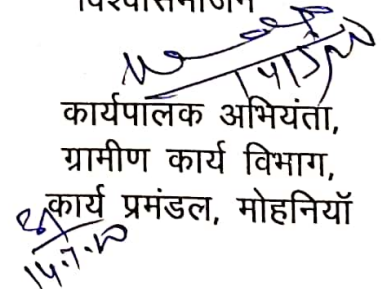 विश्वासभाजन
कार्यपालक अभियंता,
ग्रामीण कार्य विभाग,
कार्य प्रमंडल, मोहनियाॅ
14.7.20